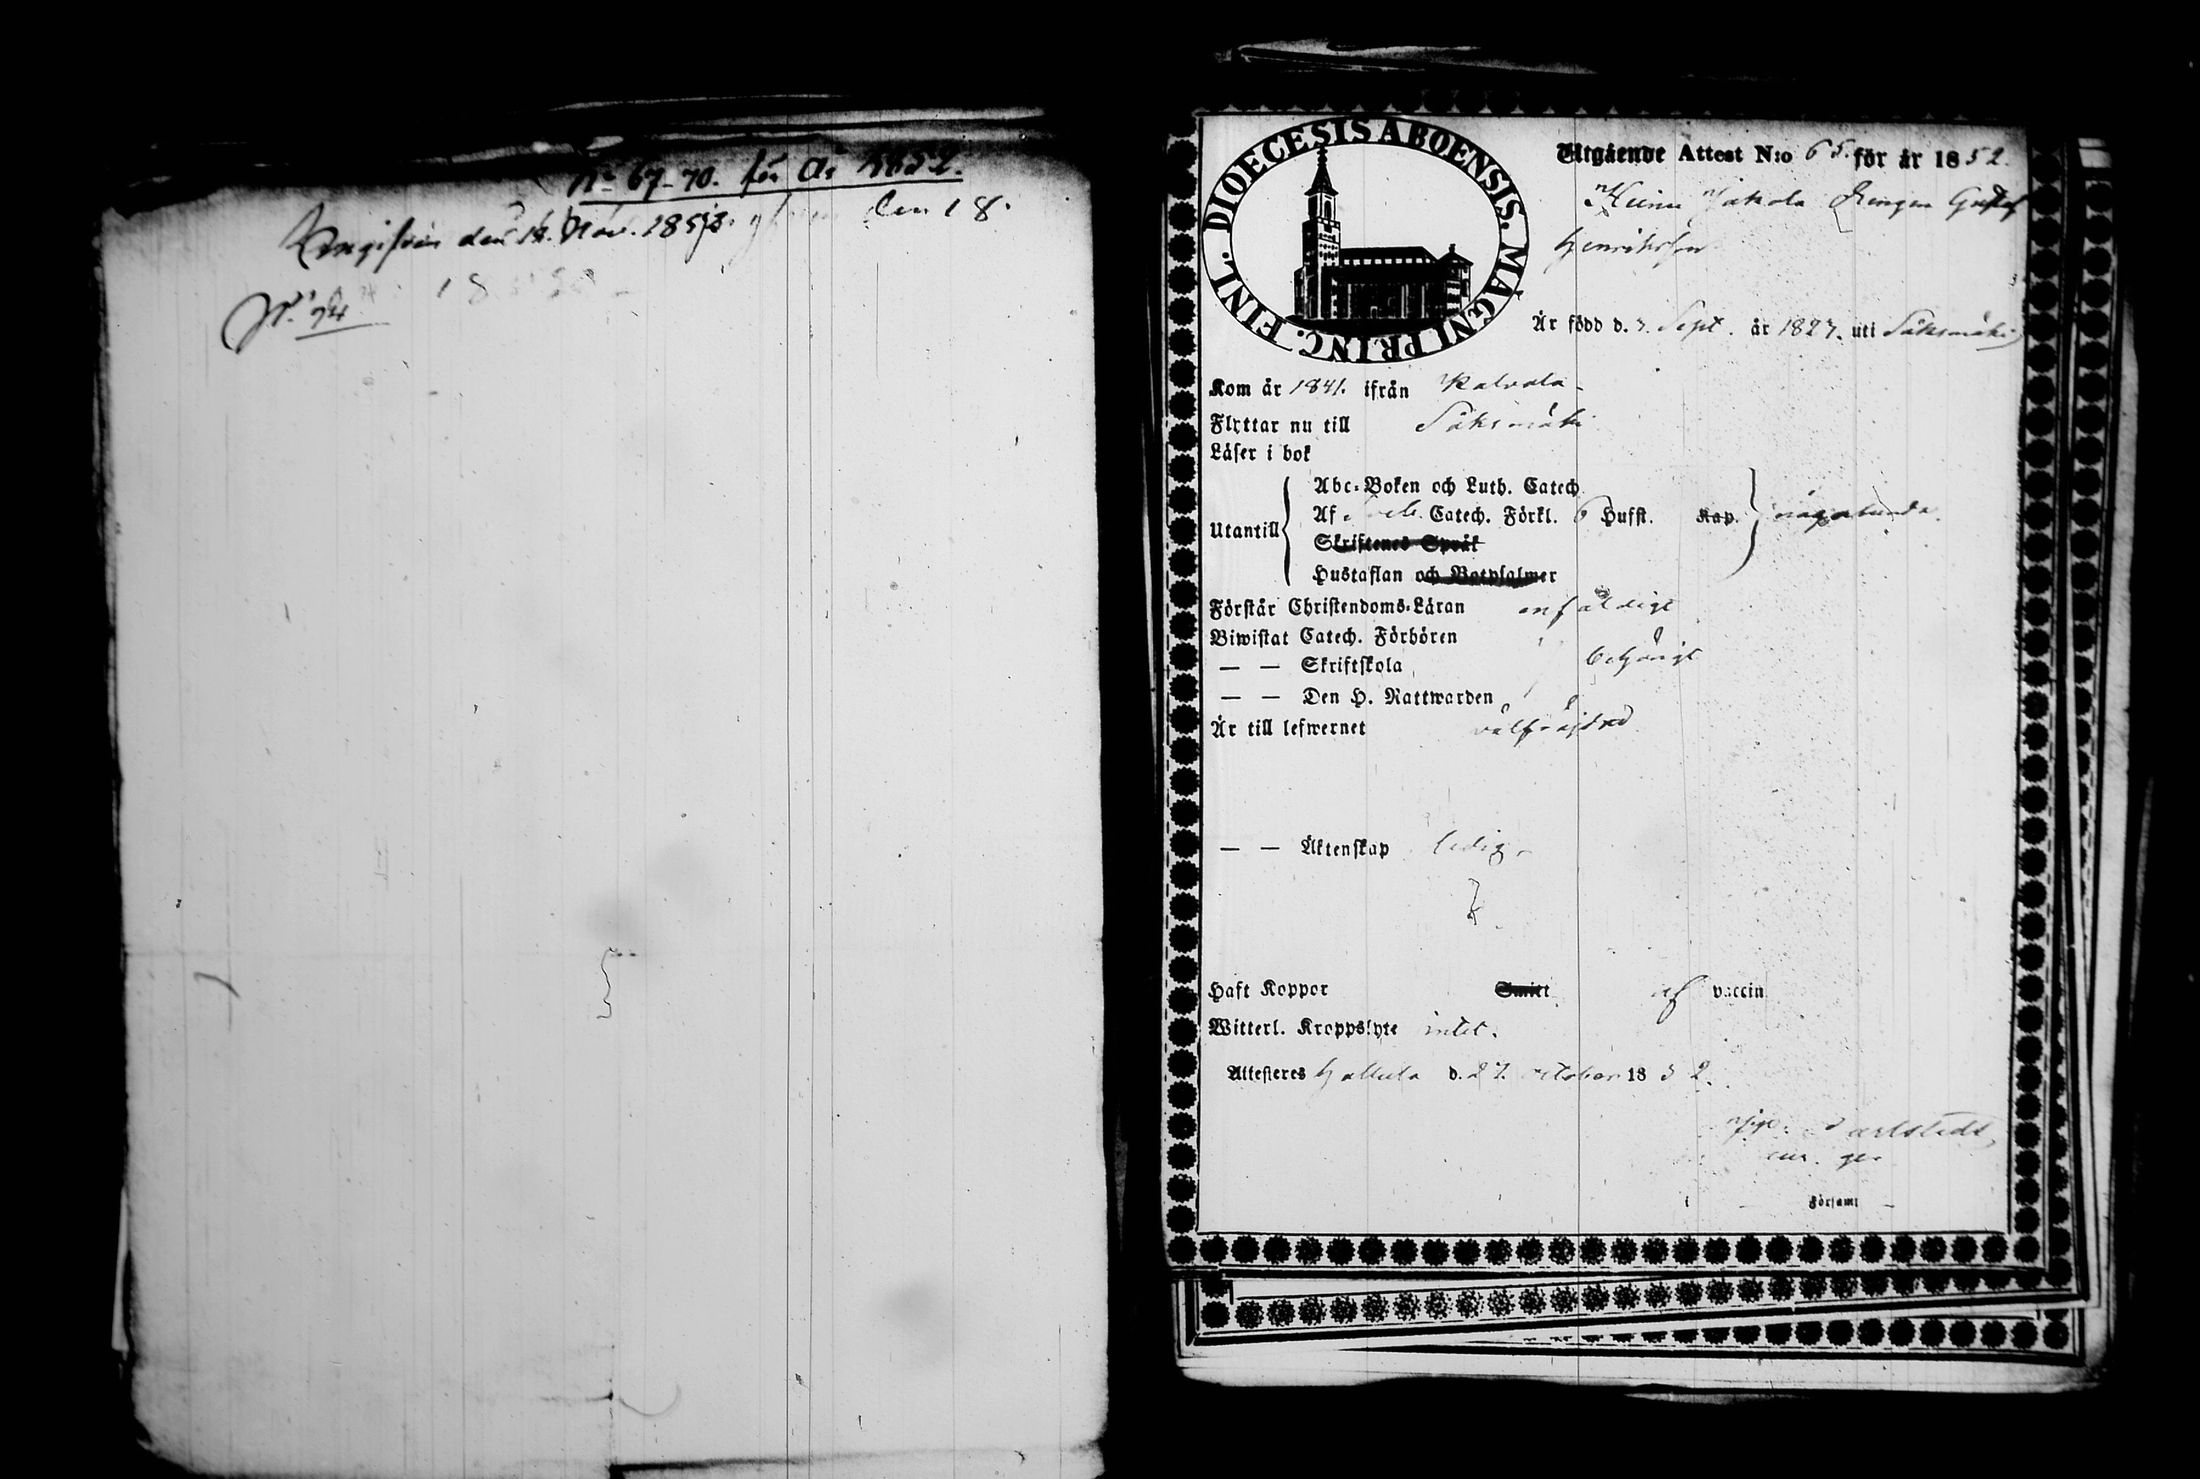 No 67-70. för År 1852.
den 14. Nov. 1853. den 18.
N. 74
DIOECESIS ABOENSIS. MAGNI PRINC. FINL.
Utgående Attest N:o 65. för år 1852.
Jakola Drengen Gustaf
Henriksson
Är född d. 7. Sept. år 1827. uti Sääksmäki
Kom år 1841. ifrån Kalvola
Flyttar nu till Sääksmäki
Läser i bok
Utantill
Abc-Boken och Luth. Catech.
Af Sveb. Catech. Förkl. 6 Hufst. Kap. någorlunda.
Skriftenes Språk
Hustaflan och Botpsalmer
Förstår Christendoms-Läran enfaldigt
Biwistat Catech. Förhören
— — Skriftskola behörigt
— — Den H. Nattwarden
Är till lefwernet välfräjdad
— — Äktenskap ledig.
Haft Koppor Smitt af vaccin
Witterl. Kroppslyte intet.
Attesteras Hattula d. 27. october 1852.
Carlstedt,
Församl